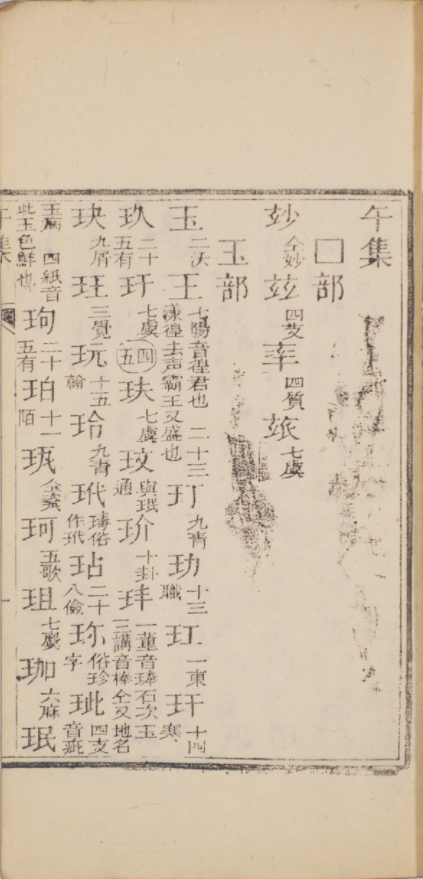 午集
□部
玅仝妙玆四支率四質玈七虞
玉部
玉二沃王七陽音徨君也二十三漾徨去声霸王又盛也玎九青玏十三職玒一東玕十四寒
玖二十五有玗七虞四五玞七虞玟與珉通玠十卦玤一董音琫石次玉三講音棒仝又地名
玦九屑玨三覺玩十五翰玲九青玳瑇俗作玳玷二十八儉珎俗珍字玼四支音疵
玉病四紙音此玉色鮮也玽二十五有珀十一陌珂五歌珇七麌珈六麻珉